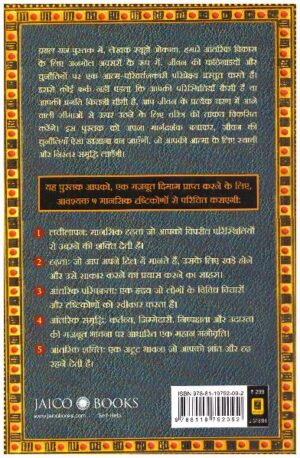 इस पुस्तक में, लेखक रयूहो ओकावा, हमारे आंतरिक विकास
के लिए अनमोल अवसरों के रूप में, जीवन की कठिनाइयों और
चुनौतियों पर एक आत्म-परिवर्तनकारी परिप्रेक्ष्य प्रस्तुत करते हैं।
इससे कोई फर्क नहीं पड़ता कि आपकी परिस्थितियाँ कैसी हैं या
आपकी प्रगति कितनी धीमी है, आप जीवन के प्रत्येक चरण में आने
वाली सीमाओं से ऊपर उठने के लिए चरित्र की ताकत विकसित
करेंगे। इस पुस्तक को अपना मार्गदर्शक बनाकर, जीवन की
चुनौतियाँ ऐसा खजाना बन जाएंगी, जो आपकी आत्मा के लिए स्थायी
और निरंतर समृद्धि लाएँगी।
यह पुस्तक आपको, एक मजबूत दिमाग प्राप्त करने के लिए,
आवश्यक ५ मानसिक दृष्टिकोणों से परिचित कराएगी:
1 लचीलापन: मानसिक दृढ़ता जो आपको विपरीत परिस्थितियों
से उबरने की शक्ति देती है।
2 दृढ़ता: जो आप अपने दिल में मानते हैं, उसके लिए खड़े होने
और उसे साकार करने का प्रयास करने का साहस।
3 आंतरिक परिपक्वता: एक हृदय जो लोगों के विविध विचारों
और दृष्टिकोणों को स्वीकार करता है।
4 आंतरिक समृद्धि: कर्तव्य, जिम्मेदारी, निष्पक्षता और उदारता
की मजबूत भावना पर आधारित एक महान मनोवृत्ति।
5 आंतरिक शक्ति: एक अटूट भावना जो आपको शांत और दृढ़
रहने देती है।
JAICO BOOKS
www.jaicobooks.com Self-Help
ISBN 978-81-19792-09-2
₹ 299